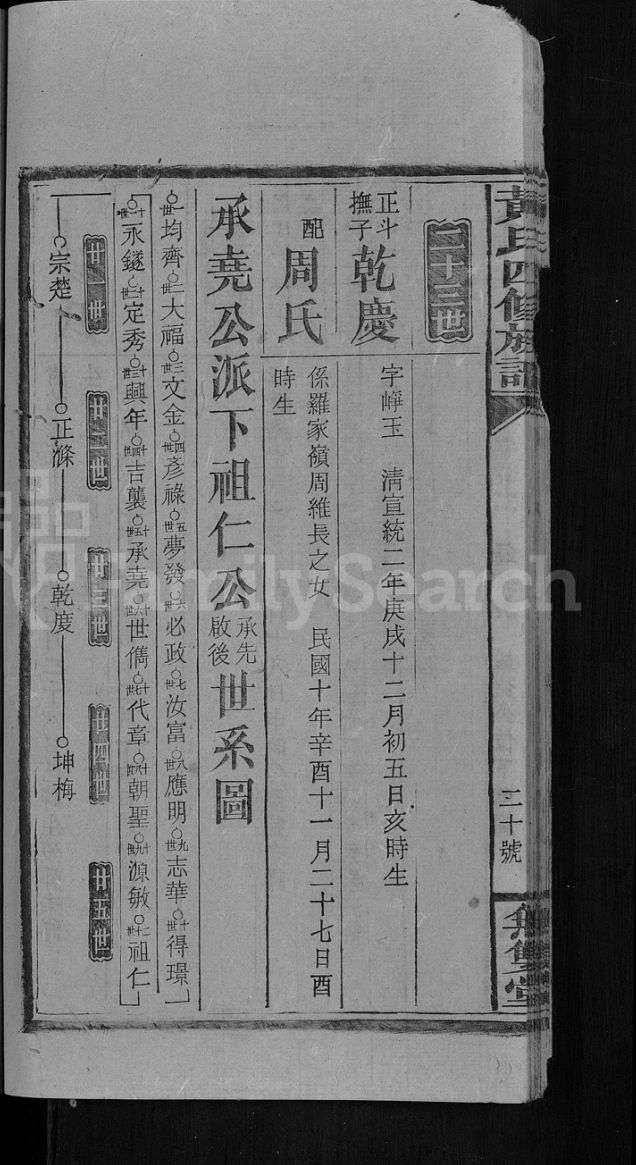 黃氏四修族譜
三十號
無雙堂
二十三世
正斗撫子 乾慶
字崢玉 清宣統二年庚戌十二月初五日亥時生
配 周氏
係羅家嶺周維長之女 民國十年辛酉十一月二十七日酉
時生
承堯公派下祖仁公承先啟後世系圖
一世均齊 二世大福 三世文金 四世彥祿 五世夢發 六世必政 七世汝富 八世應明 九世志華 十世得璟
十一世永鐩 十二世定秀 十三世興年 十四世吉襲 十五世承堯 十六世世儁 十七世代章 十八世朝聖 十九世源敏 二十世祖仁
廿一世 廿二世 廿三世 廿四世 廿五世
宗楚 正滌 乾度 坤梅
FamilySearch